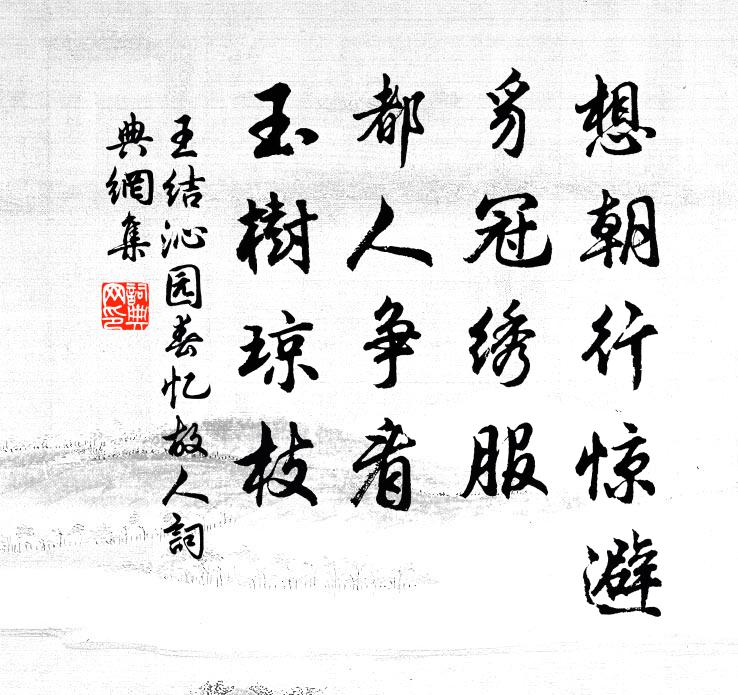 想朝行惊避
豸冠绣服
都人争看
玉樹琼枝
王结沁园春忆故人詞
典網集
詞典
网印